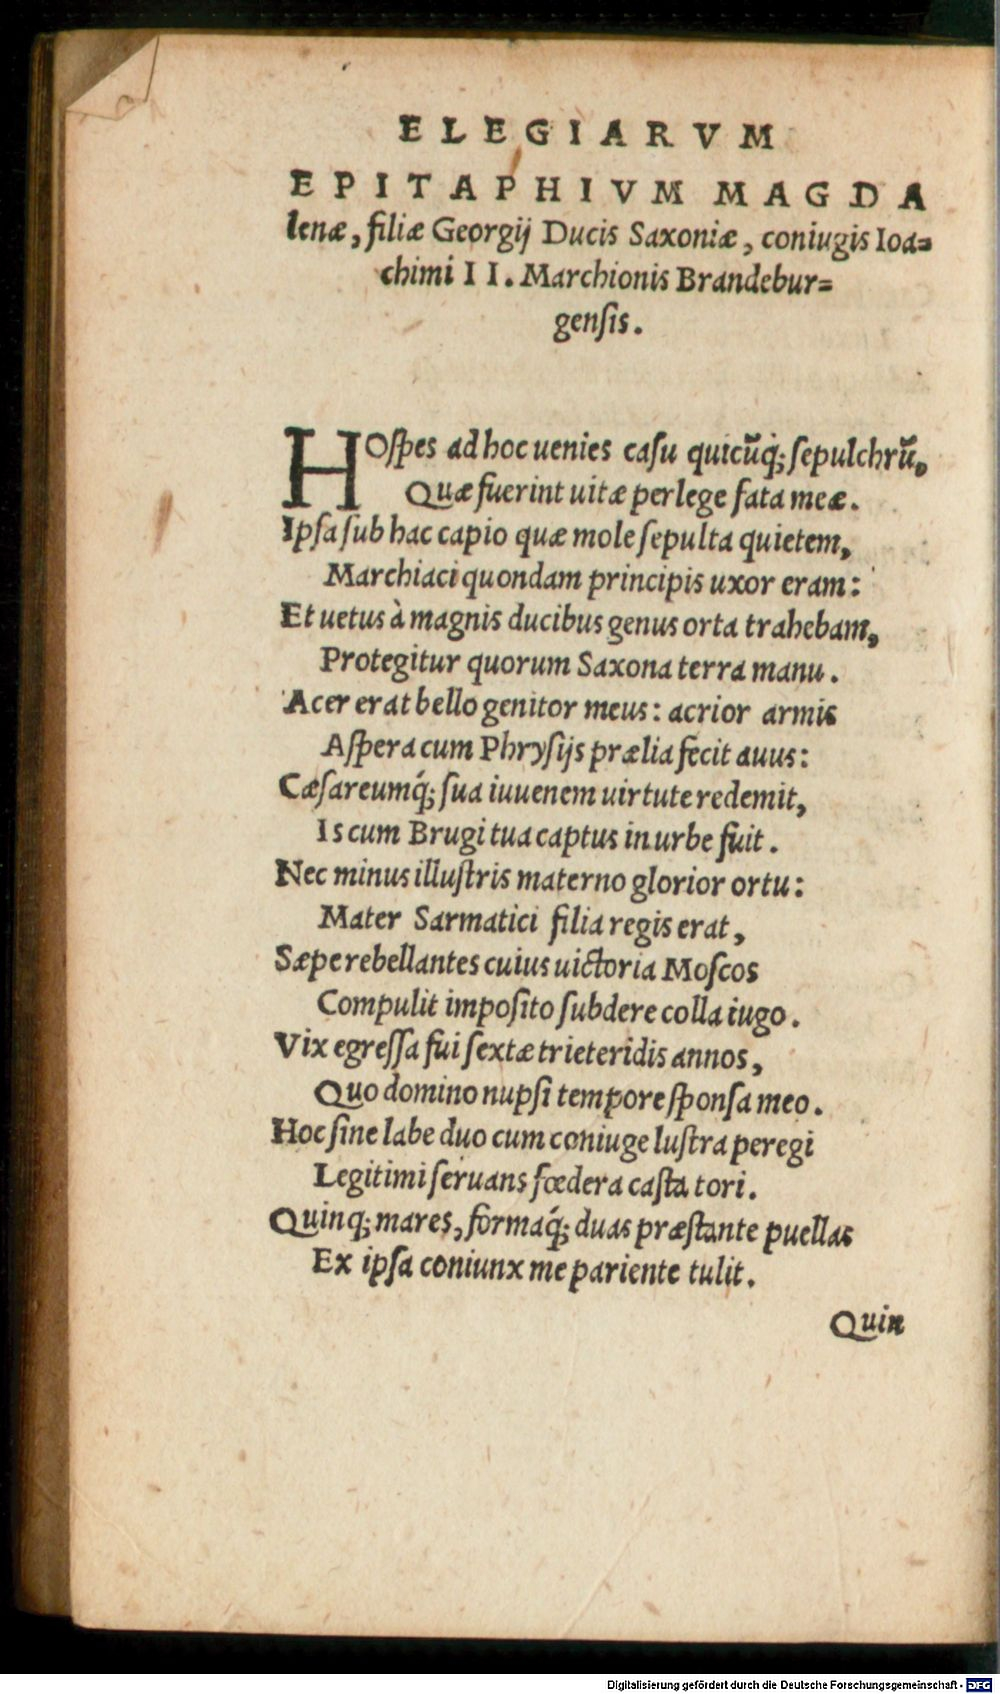 ELEGIARVM
EPITAPHIVM MAGDA
lenæ, filiæ Georgij Ducis Saxoniæ, coniugis Ioa=
chimi II. Marchionis Brandebur=
genſis.
HOſpes ad hoc uenies caſu quicũq́; ſepulchrũ,
Quæ fuerint uitæ perlege fata meæ.
Ipſa ſub hac capio quæ mole ſepulta quietem,
Marchiaci quondam principis uxor eram:
Et uetus à magnis ducibus genus orta trahebam,
Protegitur quorum Saxona terra manu.
Acer erat bello genitor meus: acrior armis
Aſpera cum Phryſijs prælia fecit auus:
Cæſareumq́; ſua iuuenem uirtute redemit,
Is cum Brugi tua captus in urbe fuit.
Nec minus illuſtris materno glorior ortu:
Mater Sarmatici filia regis erat,
Sæpe rebellantes cuius uictoria Moſcos
Compulit impoſito ſubdere colla iugo.
Vix egreſſa fui ſextæ trieteridis annos,
Quo domino nupſi tempore ſponſa meo.
Hoc ſine labe duo cum coniuge luſtra peregi
Legitimi ſeruans fœdera caſta tori.
Quinq; mares, formaq́; duas præſtante puellas
Ex ipſa coniunx me pariente tulit.
Quin
Digitalisierung gefördert durch die Deutsche Forschungsgemeinschaft - DFG